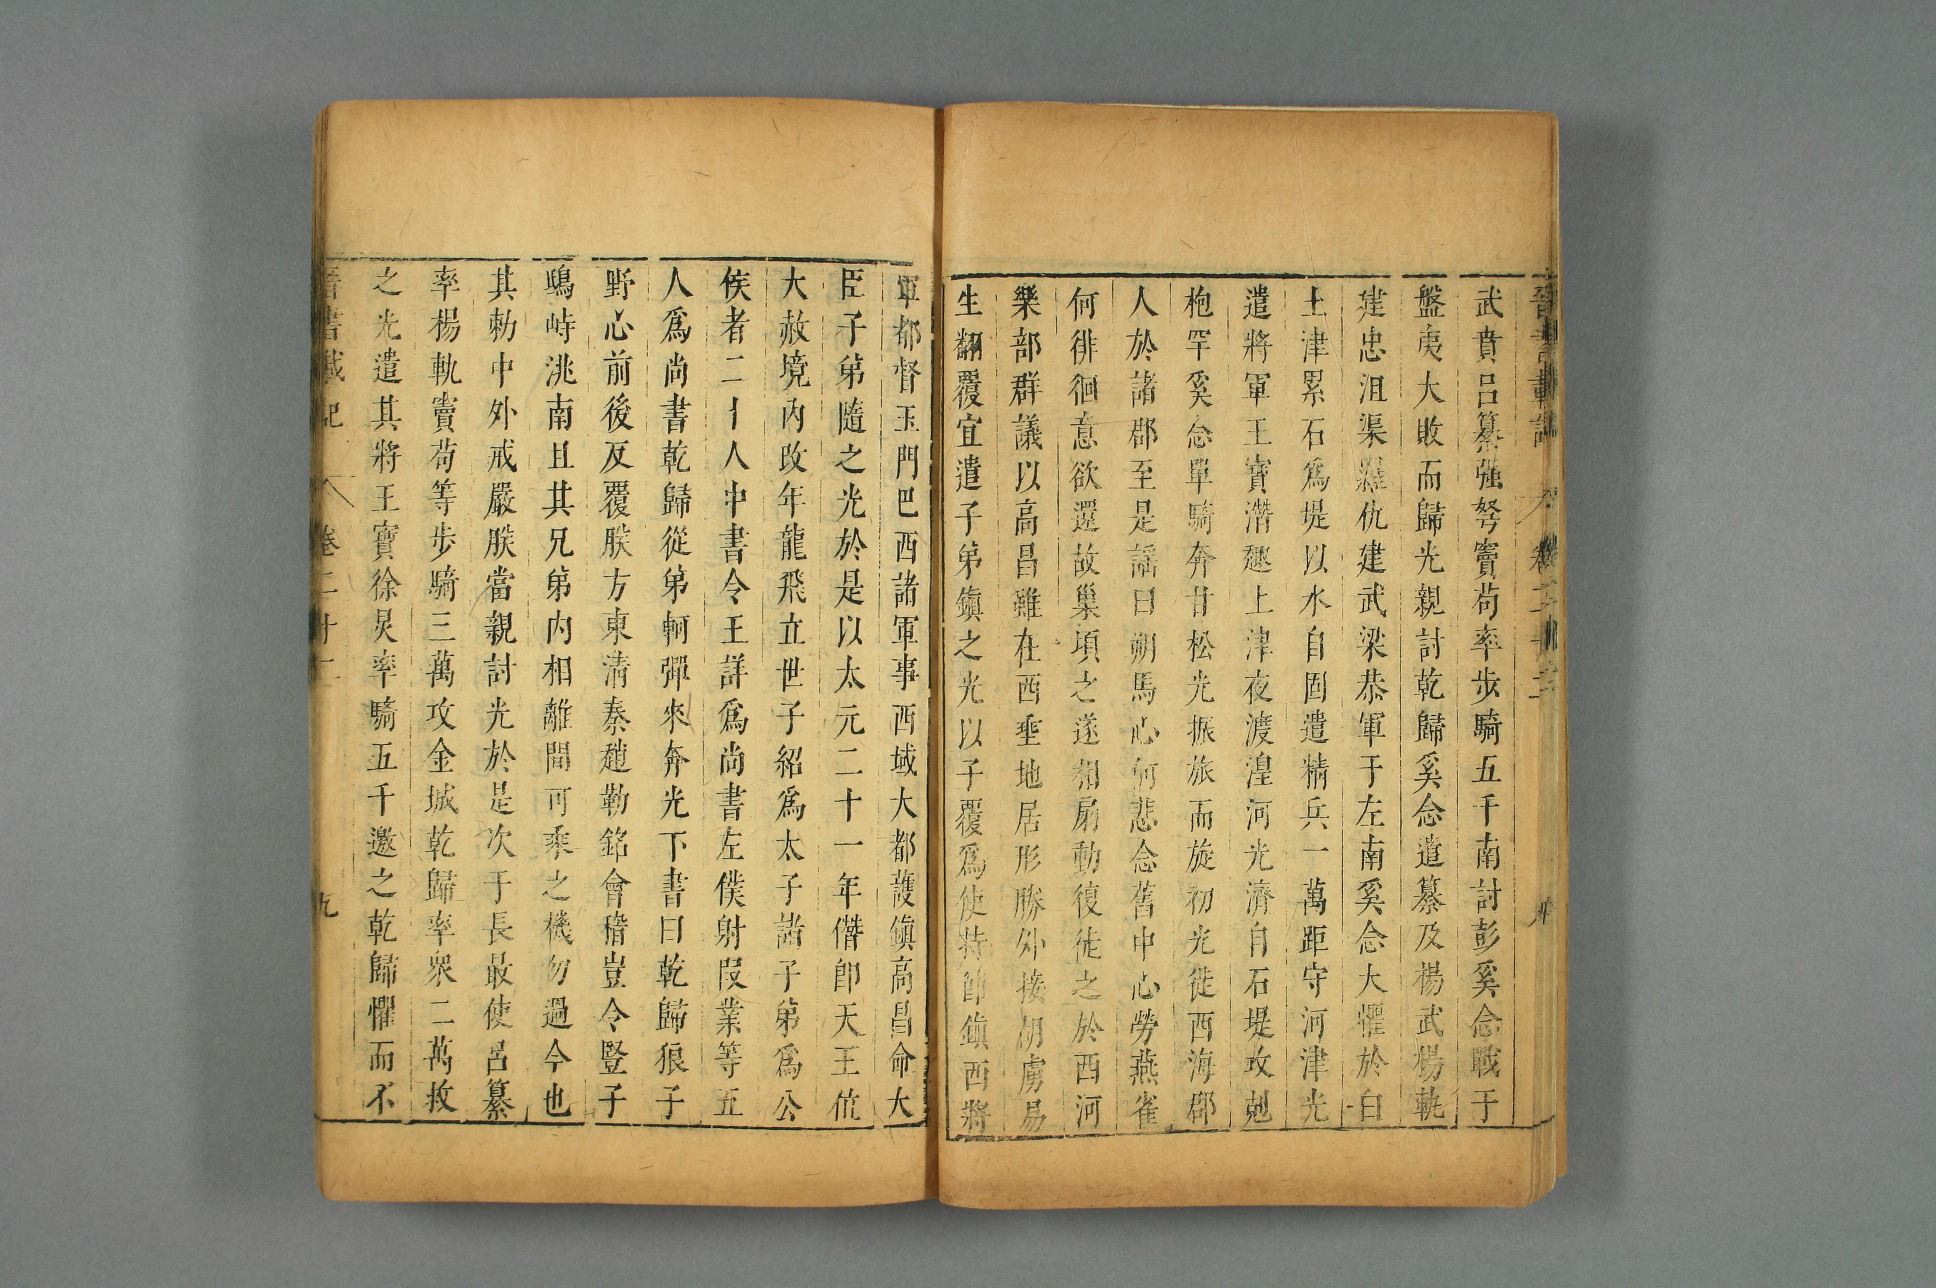 武賁呂纂强弩竇苟率步騎五千南討彭奚念戰于
盤夷大敗而歸光親討乾歸奚念遣纂及楊武楊軌
建忠沮渠羅仇建武梁恭軍于左南奚念大懼於白
土津累石爲堤以水自固遣精兵一萬距守河津光
遣將軍王寶潛趣上津夜渡湟河光濟自石堤攻剋
枹罕奚念單騎奔甘松光振旅而旋初光徙西海郡
人於諸郡至是謡曰朔馬心何悲念舊中心勞燕雀
何徘徊意欲還故巢頃之遂相扇動復徙之於西河
樂部群議以高昌雖在西垂地居形勝外接胡虜易
生翻覆宜遣子弟鎮之光以子覆爲使持節鎮西將
軍都督玉門巴西諸軍事西域大都護鎮高昌命大
臣子弟隨之光於是以太元二十一年僭即天王位
大赦境内改年龍飛立世子紹爲太子諸子弟爲公
侯者二十人中書令王詳爲尚書左僕射段業等五
人爲尚書乾歸從弟軻彈來奔光下書曰乾歸狼子
野心前後反覆朕方東清秦趙勒銘會稽豈令豎子
鴟峙洮南且其兄弟内相離間可乘之機勿過今也
其勅中外戒嚴朕當親討光於是次于長最使呂纂
率楊軌竇苟等步騎三萬攻金城乾歸率衆二萬救
之光遣其將王寶徐炅率騎五千邀之乾歸懼而不
晉書載記 卷二十二 九